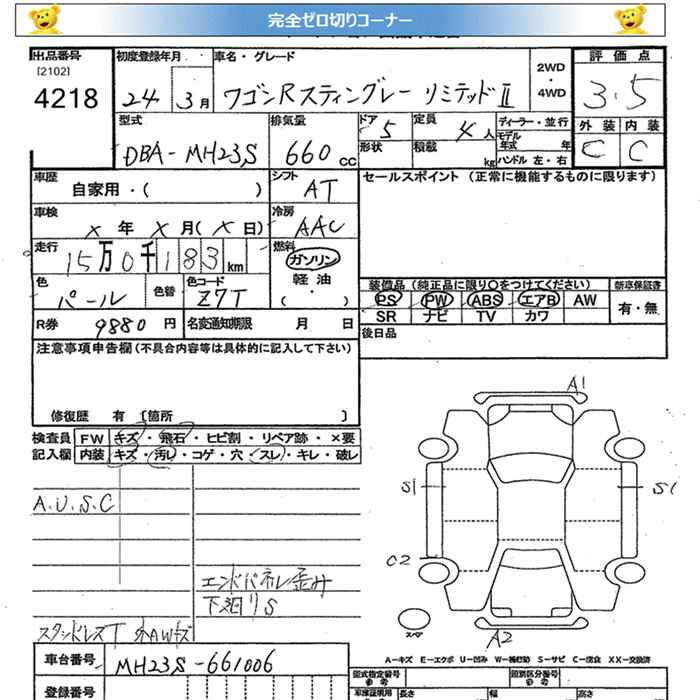 完全ゼロ切りコーナー
出品番号 初度登録年月 車名・グレード 評価点
[2102]
4218
24 3月 ワゴンRスティングレー リミテッドⅡ 2WD・4WD 3.5
外装 内装
C C
型式 排気量 ドア 5 定員 4人 ディーラー・並行
モデル年式 年
DBA-MH23S 660cc 形状 積載 kg ハンドル 左・右
車歴 シフト セールスポイント (正常に機能するものに限ります)
自家用・( ) AT
車検 冷房
X年X月(X日) AAC
走行 燃料
15万0千183km ガソリン
軽油
・( )
色 色替 色コード 装備品 (純正品に限り○をつけてください) 新車保証書
パール Z7T PS PW ABS エアB AW 有・無
SR ナビ TV カワ
R券 9880円 名変通知期限 月 日 後日品
注意事項申告欄 (不具合内容等は具体的に記入して下さい)
修復歴 有 [箇所 ]
検査員 FW キズ・飛石・ヒビ割・リペア跡・×要
記入欄 内装 キズ・汚れ・コゲ・穴・スレ・キレ・破レ
A.U.S.C
エンドパネル歪み
下廻りS
スタッドレスT 外AWキズ
A1
S1 S1
C2
スペア
A2
A-キズ E-エクボ U-凹み W-補修跡 S-サビ C-腐食 XX-交換済
車台番号 MH23S-661006
型式指定番号 参考 類別区分番号 参考
登録番号 車庫証明用 長さ 幅 高さ